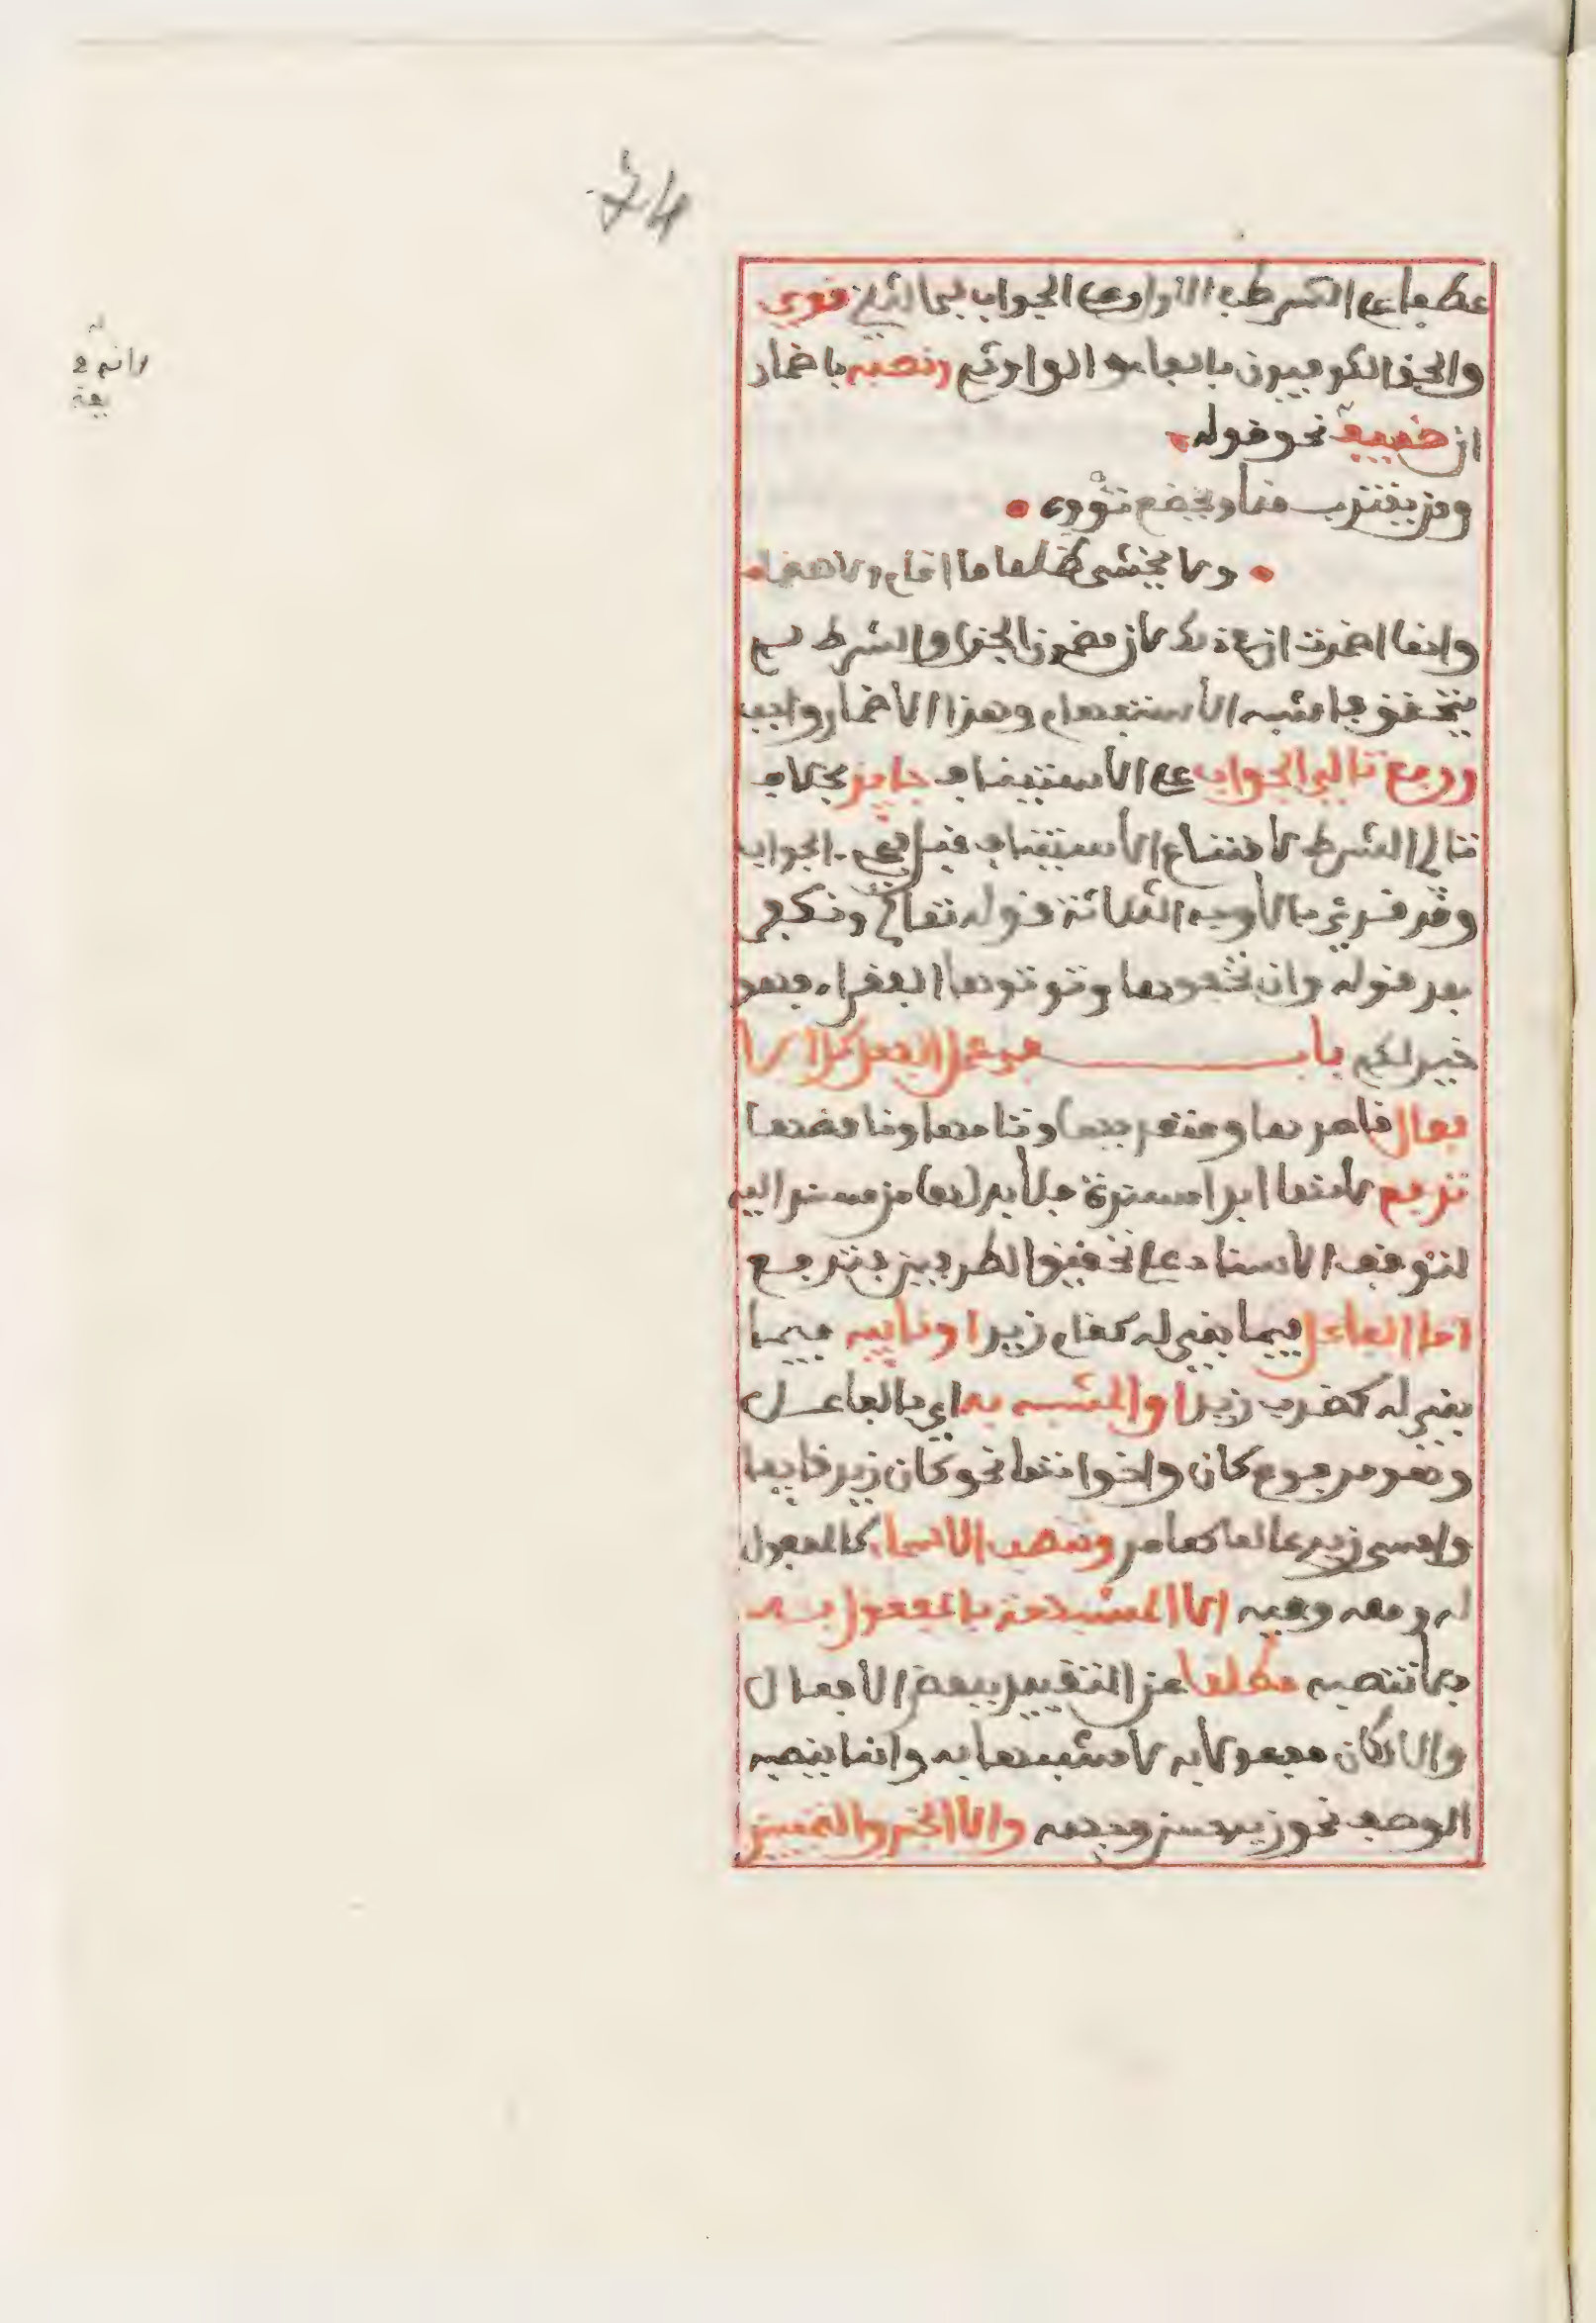 عطفا على الشرط في الاول وعلى الجواب في الثاني قوي
والحق الكوفيون بالفاء والواو ثم ونصبه باضمار
ان ضعيف نحو قوله
ومن يقترب منا ويخضع نؤوه
ولا يخش ظلما ما اقام ولا هضما
وانما اضمرت ان بعد ذلك لان مضمون الجزاء والشرط لم
يتحقق فاشبه الاستفهام وهذا الاضمار واجب
ورفع تالي الجواب على الاستيناف جايز بخلاف
تالي الشرط لامتناع الاستيناف قبل الجواب
وقد قرئ بالاوجه الثلاثة قوله تعالى ونكفر
بعد قوله وان تخفوها وتوتوها الفقراء فهو
خير لكم باب في عمل الفعل كل الا
فعال قاصرها ومتعديها وتامها وناقصها
ترفع لانها ابدا مسندة فلابد لها من مسند اليه
لتوقف الاسناد على تحقيق الطرفين فترفع
اما الفاعل فيما بني له كقام زيد او نايبه فيما
بني له كضرب زيد او المشبه به اي بالفاعل
وهو مرفوع كان واخواتها نحو كان زيد قايما
وامسى زيد عالما كما مر وتنصب الاسماء كالمفعول
له ومعه وفيه الا المشبه بالمفعول به
فلا تنصبه مطلقا عن التقييد ببعض الافعال
والا لكان مفعولا به لا مشبها به وانما ينصبه
الوصف نحو زيد حسن وجهه والا الخبر والتمييز